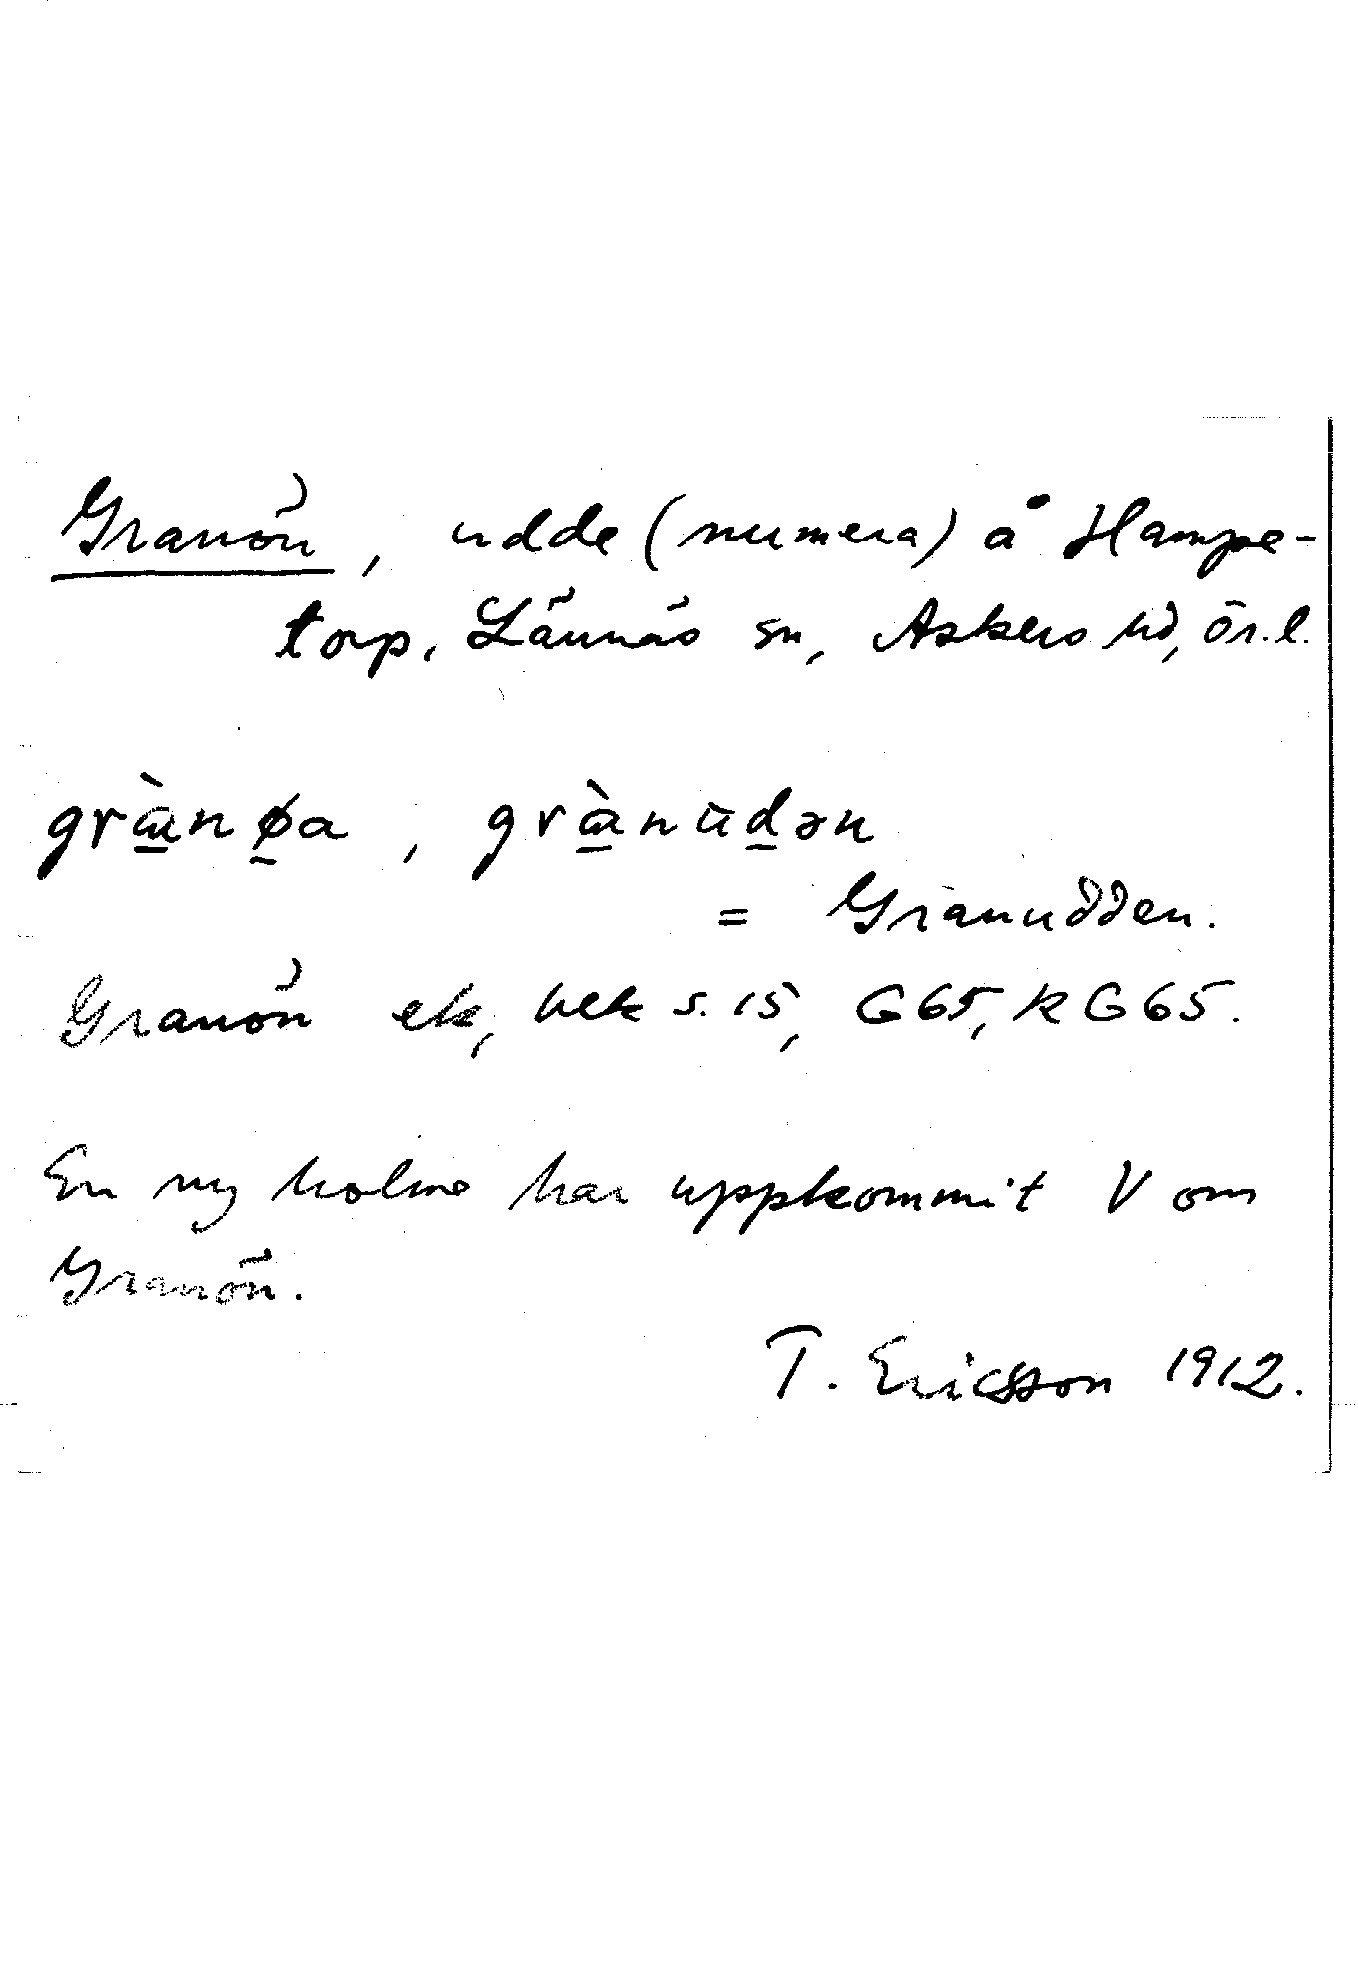 Granön, udde (numera) å Hampe-
torp, Lännäs sn, Askers hd, Ör. l.
grànøa, grànudən
= Granudden.
Granön ek, hek s. 15, G65, k G65.
En ny holme har uppkommit V om
Granön.
T. Ericsson 1912.